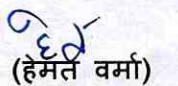 (हेमंत वर्मा)